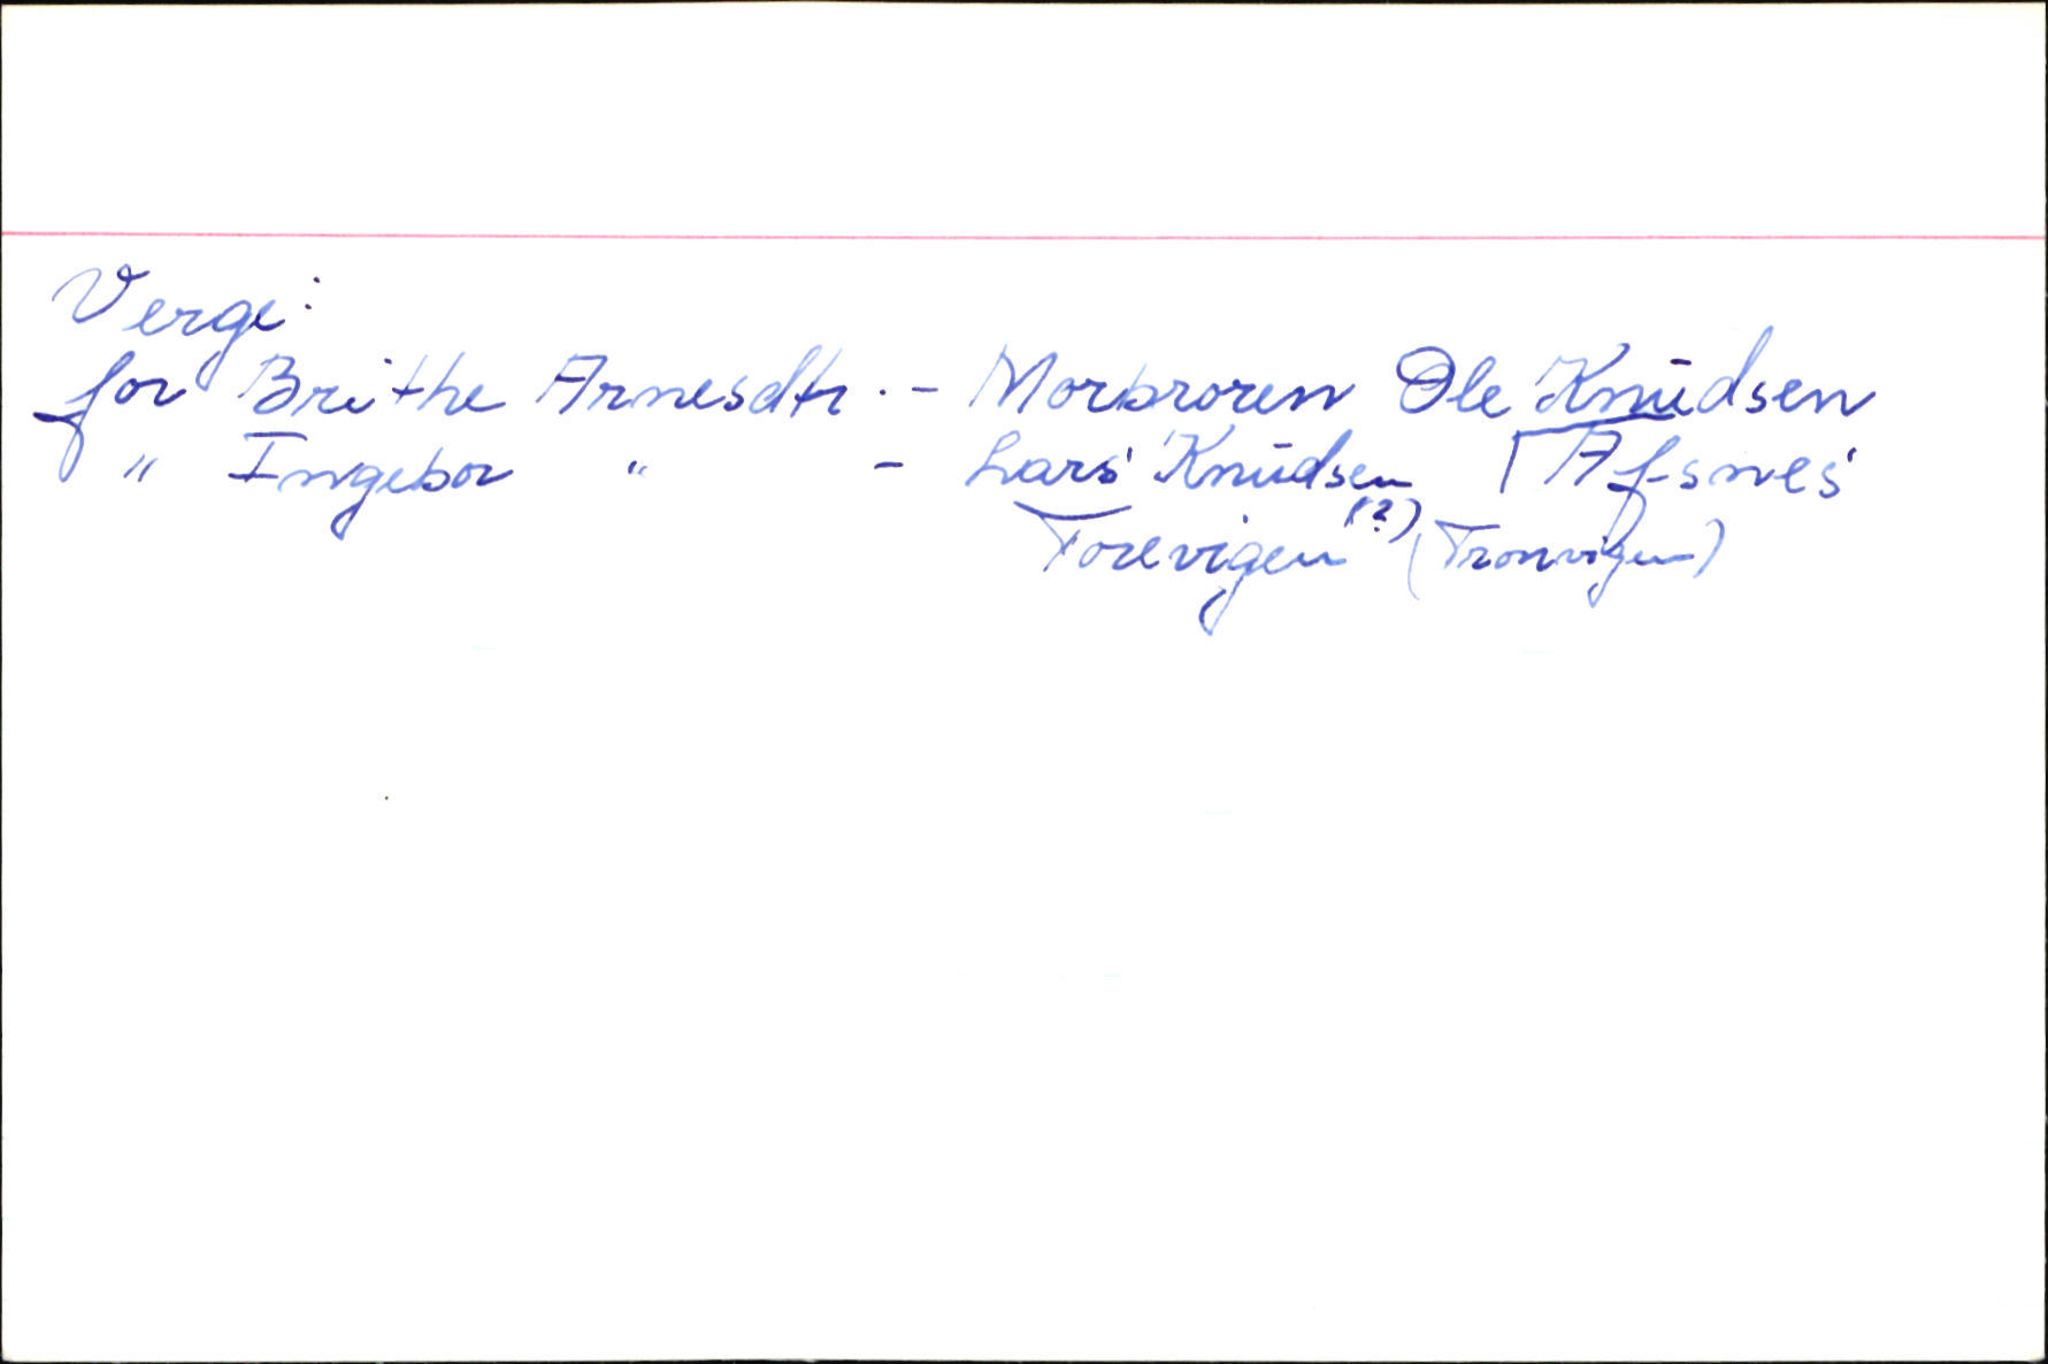 Verge:
for Brithe Arnesdtr. - Morbroren Ole Knudsen
" Ingebor " - Lars Knudsen Afsnes
Torevigen (?) (Tronvigen)